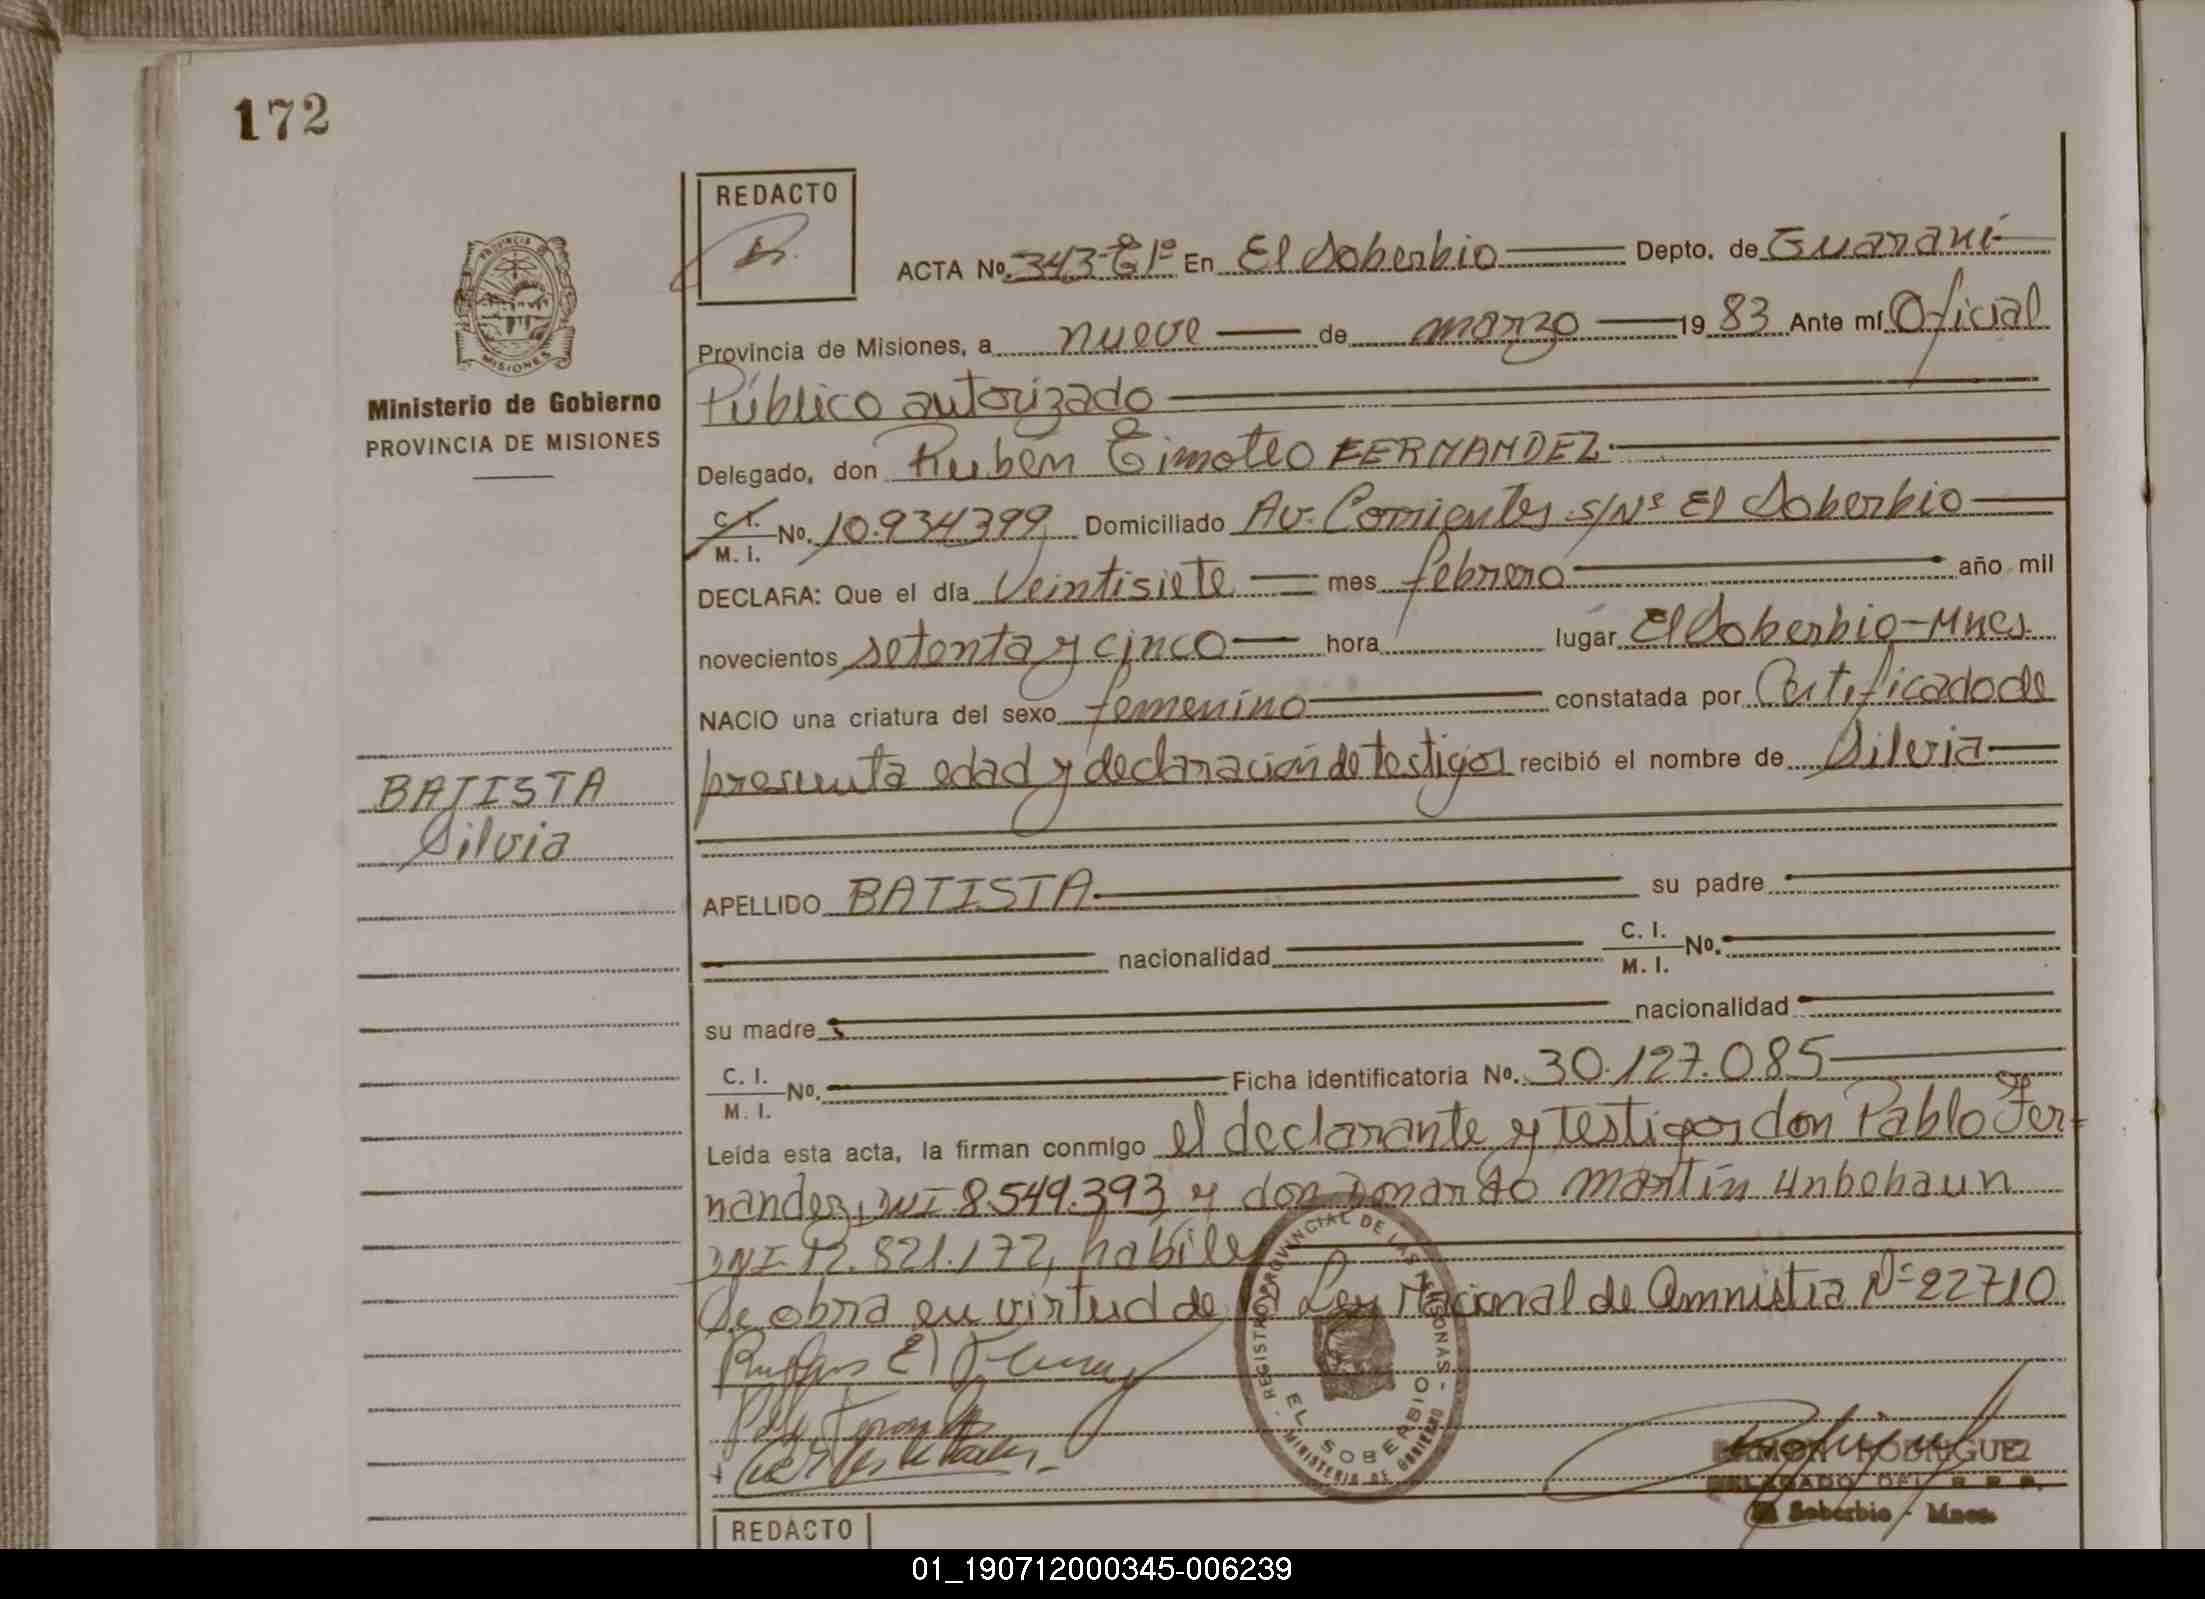 172
REDACTO
ACTA Nº 343-Tº 1º En El Soberbio Depto. de Guaraní
PROVINCIA DE
MISIONES
Provincia de Misiones, a nueve de marzo 19 83 Ante mí Oficial
Ministerio de Gobierno
PROVINCIA DE MISIONES
Público autorizado
Delegado, don Rubén Timoteo FERNANDEZ
C. I. M. I. No. 10.934399 Domiciliado Av. Corrientes s/Nº El Soberbio
DECLARA: Que el día Veintisiete mes febrero año mil
novecientos setenta y cinco hora lugar El Soberbio-Mnes
NACIO una criatura del sexo femenino constatada por Certificado de
presunta edad y declaración de testigos recibió el nombre de Silvia
BATISTA
Silvia
APELLIDO BATISTA su padre
nacionalidad C. I. M. I. No.
su madre nacionalidad
C. I. M. I. No. Ficha identificatoria No. 30.127.085
Leída esta acta, la firman conmigo el declarante y testigos don Pablo Fer-
nandez, DNI 8.549.393 y don Martín Unbehaun
DNI 12.821.172, habiles
Se obra en virtud de la Ley Nacional de Amnistia Nº 22710
REGISTRO PROVINCIAL DE LAS PERSONAS
EL SOBERBIO
MINISTERIO DE GOBIERNO
RAMON RODRIGUEZ
DELEGADO DEL R. P. P.
El Soberbio - Mnes.
REDACTO
01_190712000345-006239